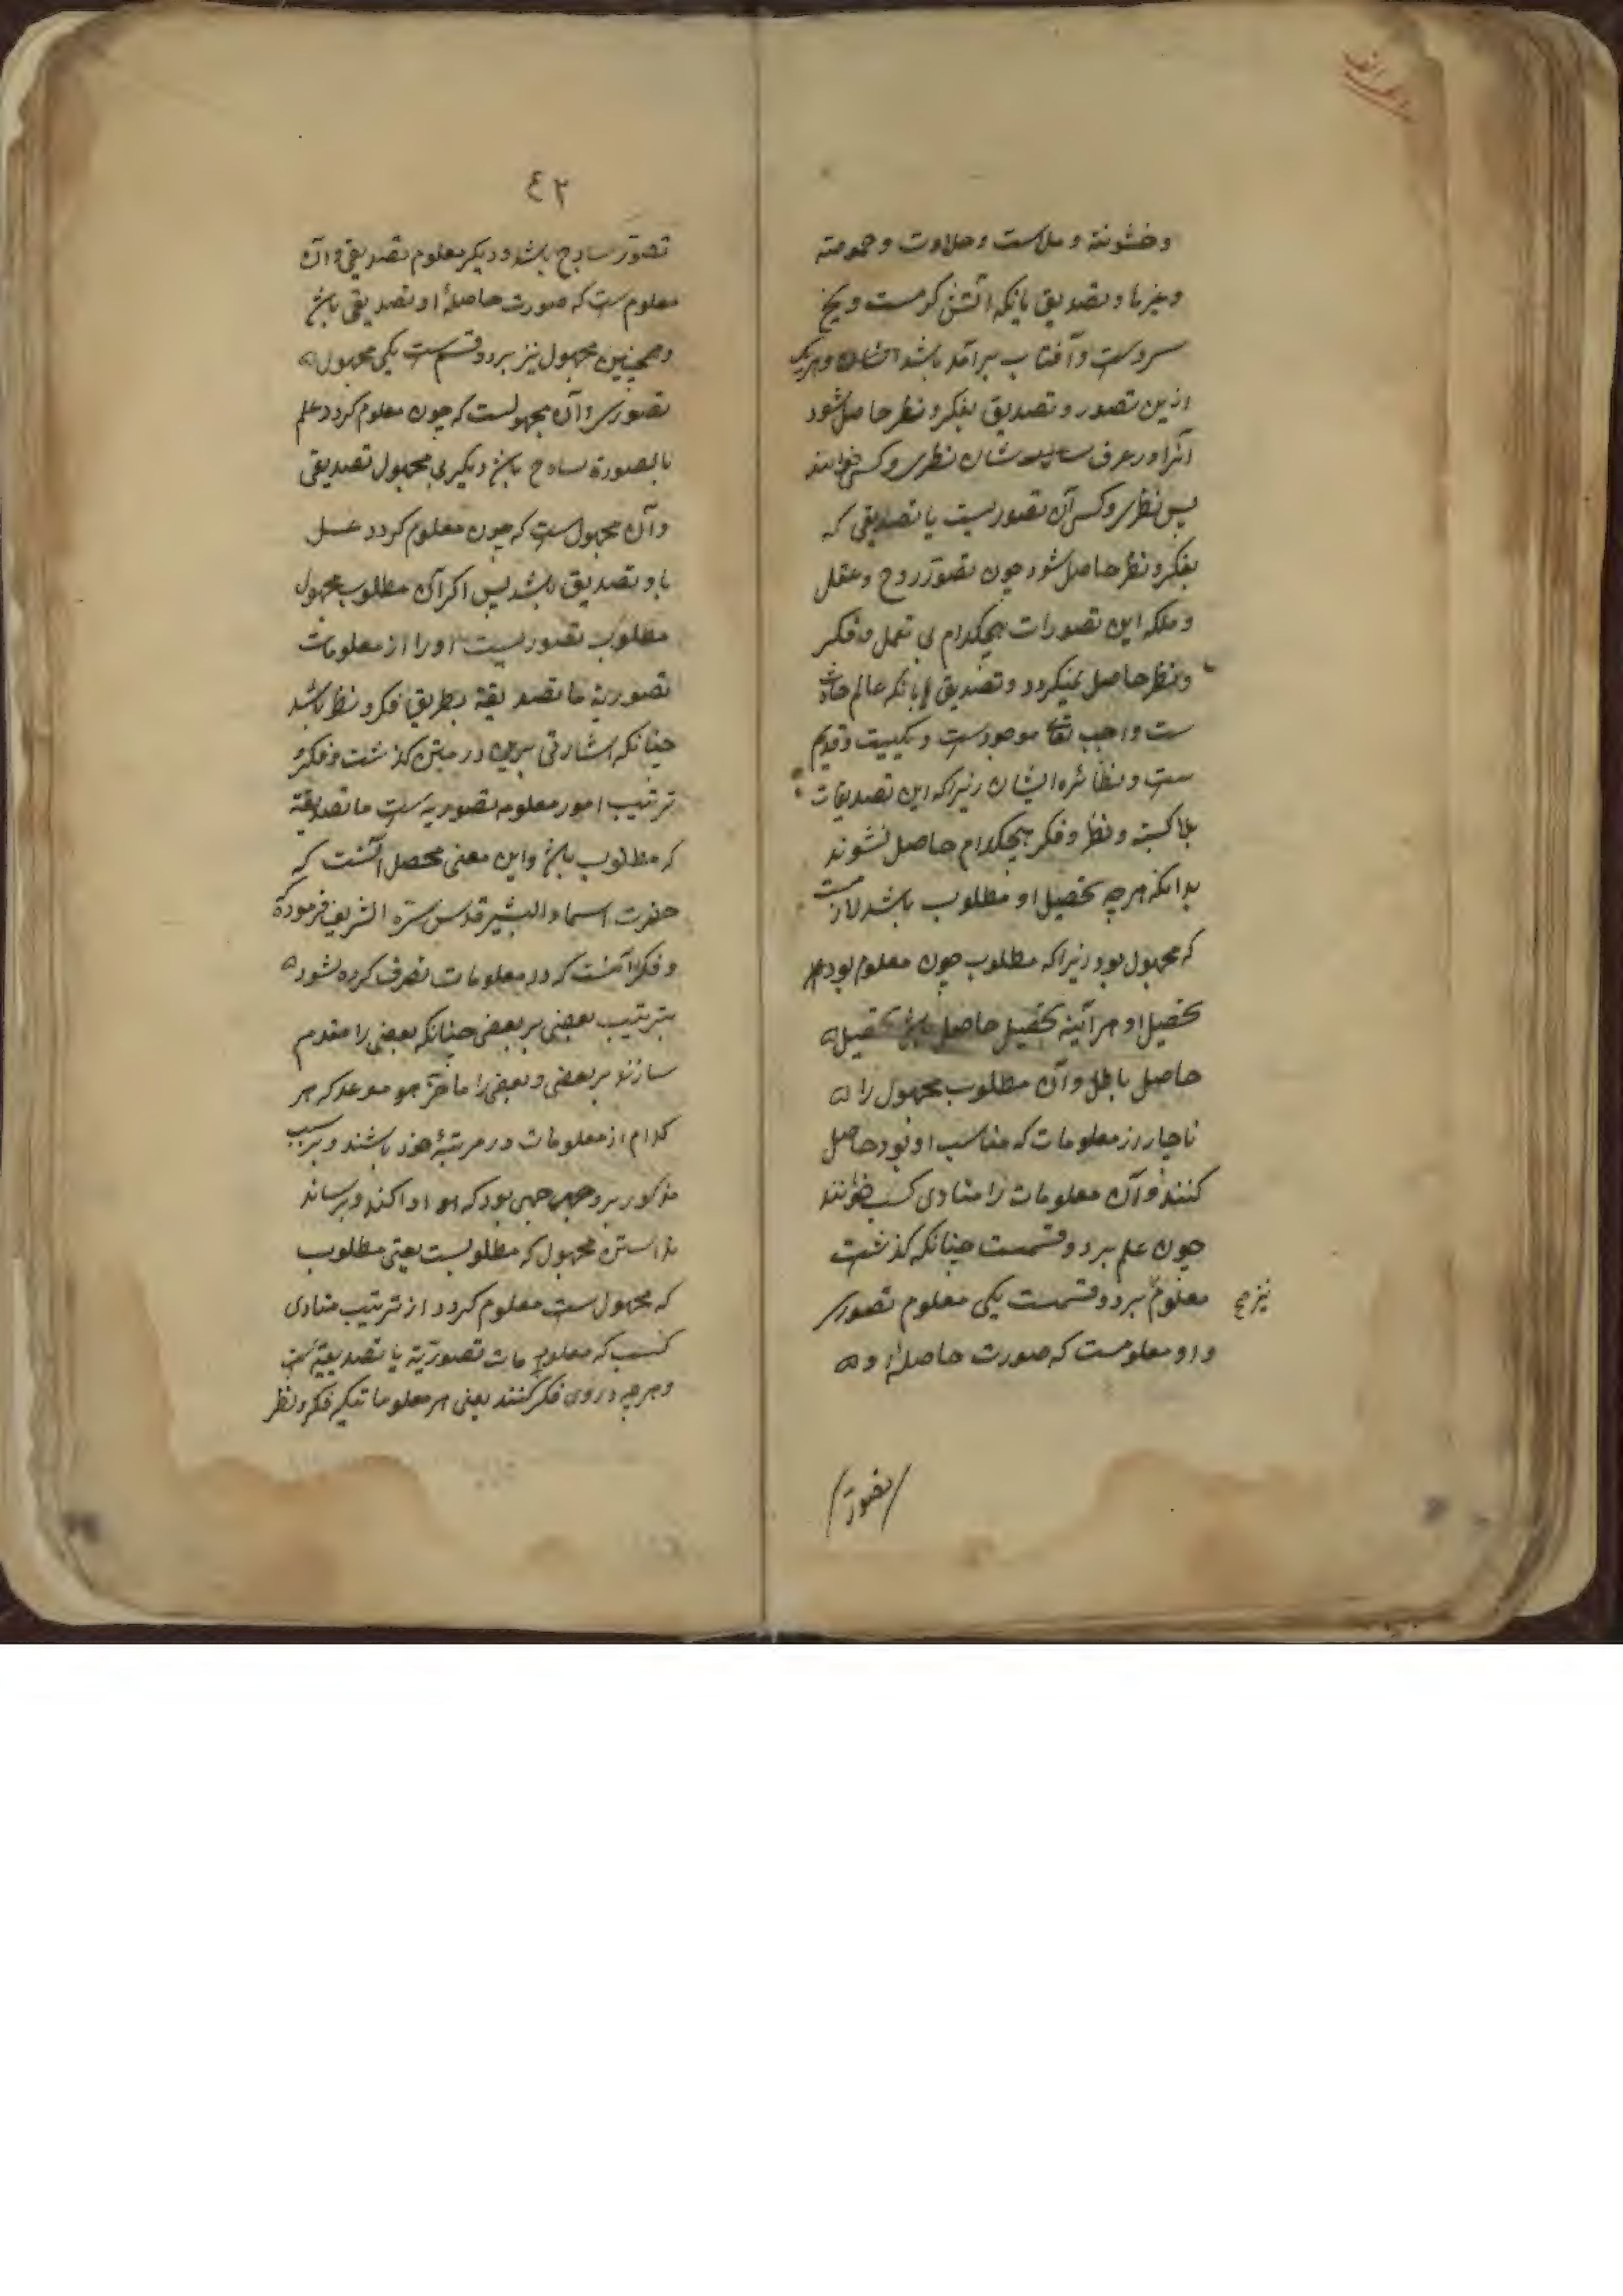 وخشونة و ملاست وحلاوت وحموضة
وغیرها وتصدیق بانکه آتش کرمست ویخ
سردست وآفتاب برآمد باشد وهریک
ازین تصور و تصدیق بفکر و نظر حاصل شود
آنرا در عرف نظری وکسبی خوانند
پس نظری وکسبی آن تصوریست یا تصدیقی که
بفکر ونظر حاصل شود چون تصور روح وعقل
وملکه این تصورات هیچکدام بی تعمل وفکر
ونظر حاصل نمیکردد وتصدیق بانکه عالم حادث
ست واجب تعا موجودست ویکیست وقدیم
ست ونظائره ایشان زیراکه این تصدیقات
بلا کسبته ونظر وفکر هیچکدام حاصل نشوند
بدانکه هرچه تحصیل او مطلوب باشد لازمست
که مجهول بود زیراکه مطلوب چون معلوم بود
تحصیل او هرآئینه تحصیل حاصل باشد تحصیل
حاصل باطل وآن مطلوب مجهول را
ناچار از معلومات که مناسب او بود حاصل
کنند وآن معلومات را مبادی کسب خوانند
چون علم بردوقسمست چنانکه کذشت
معلوم بردوقسمست یکی معلوم تصوری
نیز صح
واو معلومست که صورت حاصلهٔ او
تصور
٤٢
تصور ساذج باشد ودیکر معلوم تصدیقی وآن
معلوم ست که صورت حاصلهٔ او تصدیقی باشد
وهمچنین مجهول نیز بردو قسم ست یکی مجهول
تصوری وآن مجهولست که چون معلوم کردد علم
بالصورة ساذج باشد دیکری مجهول تصدیقی
وآن مجهول ست که چون معلوم کردد علم
باو تصدیق باشد پس اکر آن مطلوب مجهول
مطلوب تصوریست اورا از معلومات
تصوریة یا تصدیقیة بطریق فکر ونظر باشد
چنانکه اشارتی برین در متن کذشت وفکر
ترتیب امور معلومه تصوریه ست یا تصدیقیة
که مطلوب باشد واین معنی محصل آنست که
حضرت استاد البشیر قدس سره الشریف فرموده
وفکر آنست که در معلومات تصرف کرده شود
بترتیب بعضی بر بعضی چنانکه بعضی را مقدم
سازند بر بعضی وبعضی را مأخر که هر
کدام از معلومات در مرتبهٔ خود باشند وترتیب
مذکور بر وجهی بود که او ادا کند وبرساند
بدانستن مجهول که مطلوبست یعنی مطلوب
که مجهول ست معلوم کردد از ترتیب مبادی
کسب که معلومات تصوریة یا تصدیقیة ست
وهرچه دروی فکر کنند یعنی هر معلوماتیکه فکر ونظر